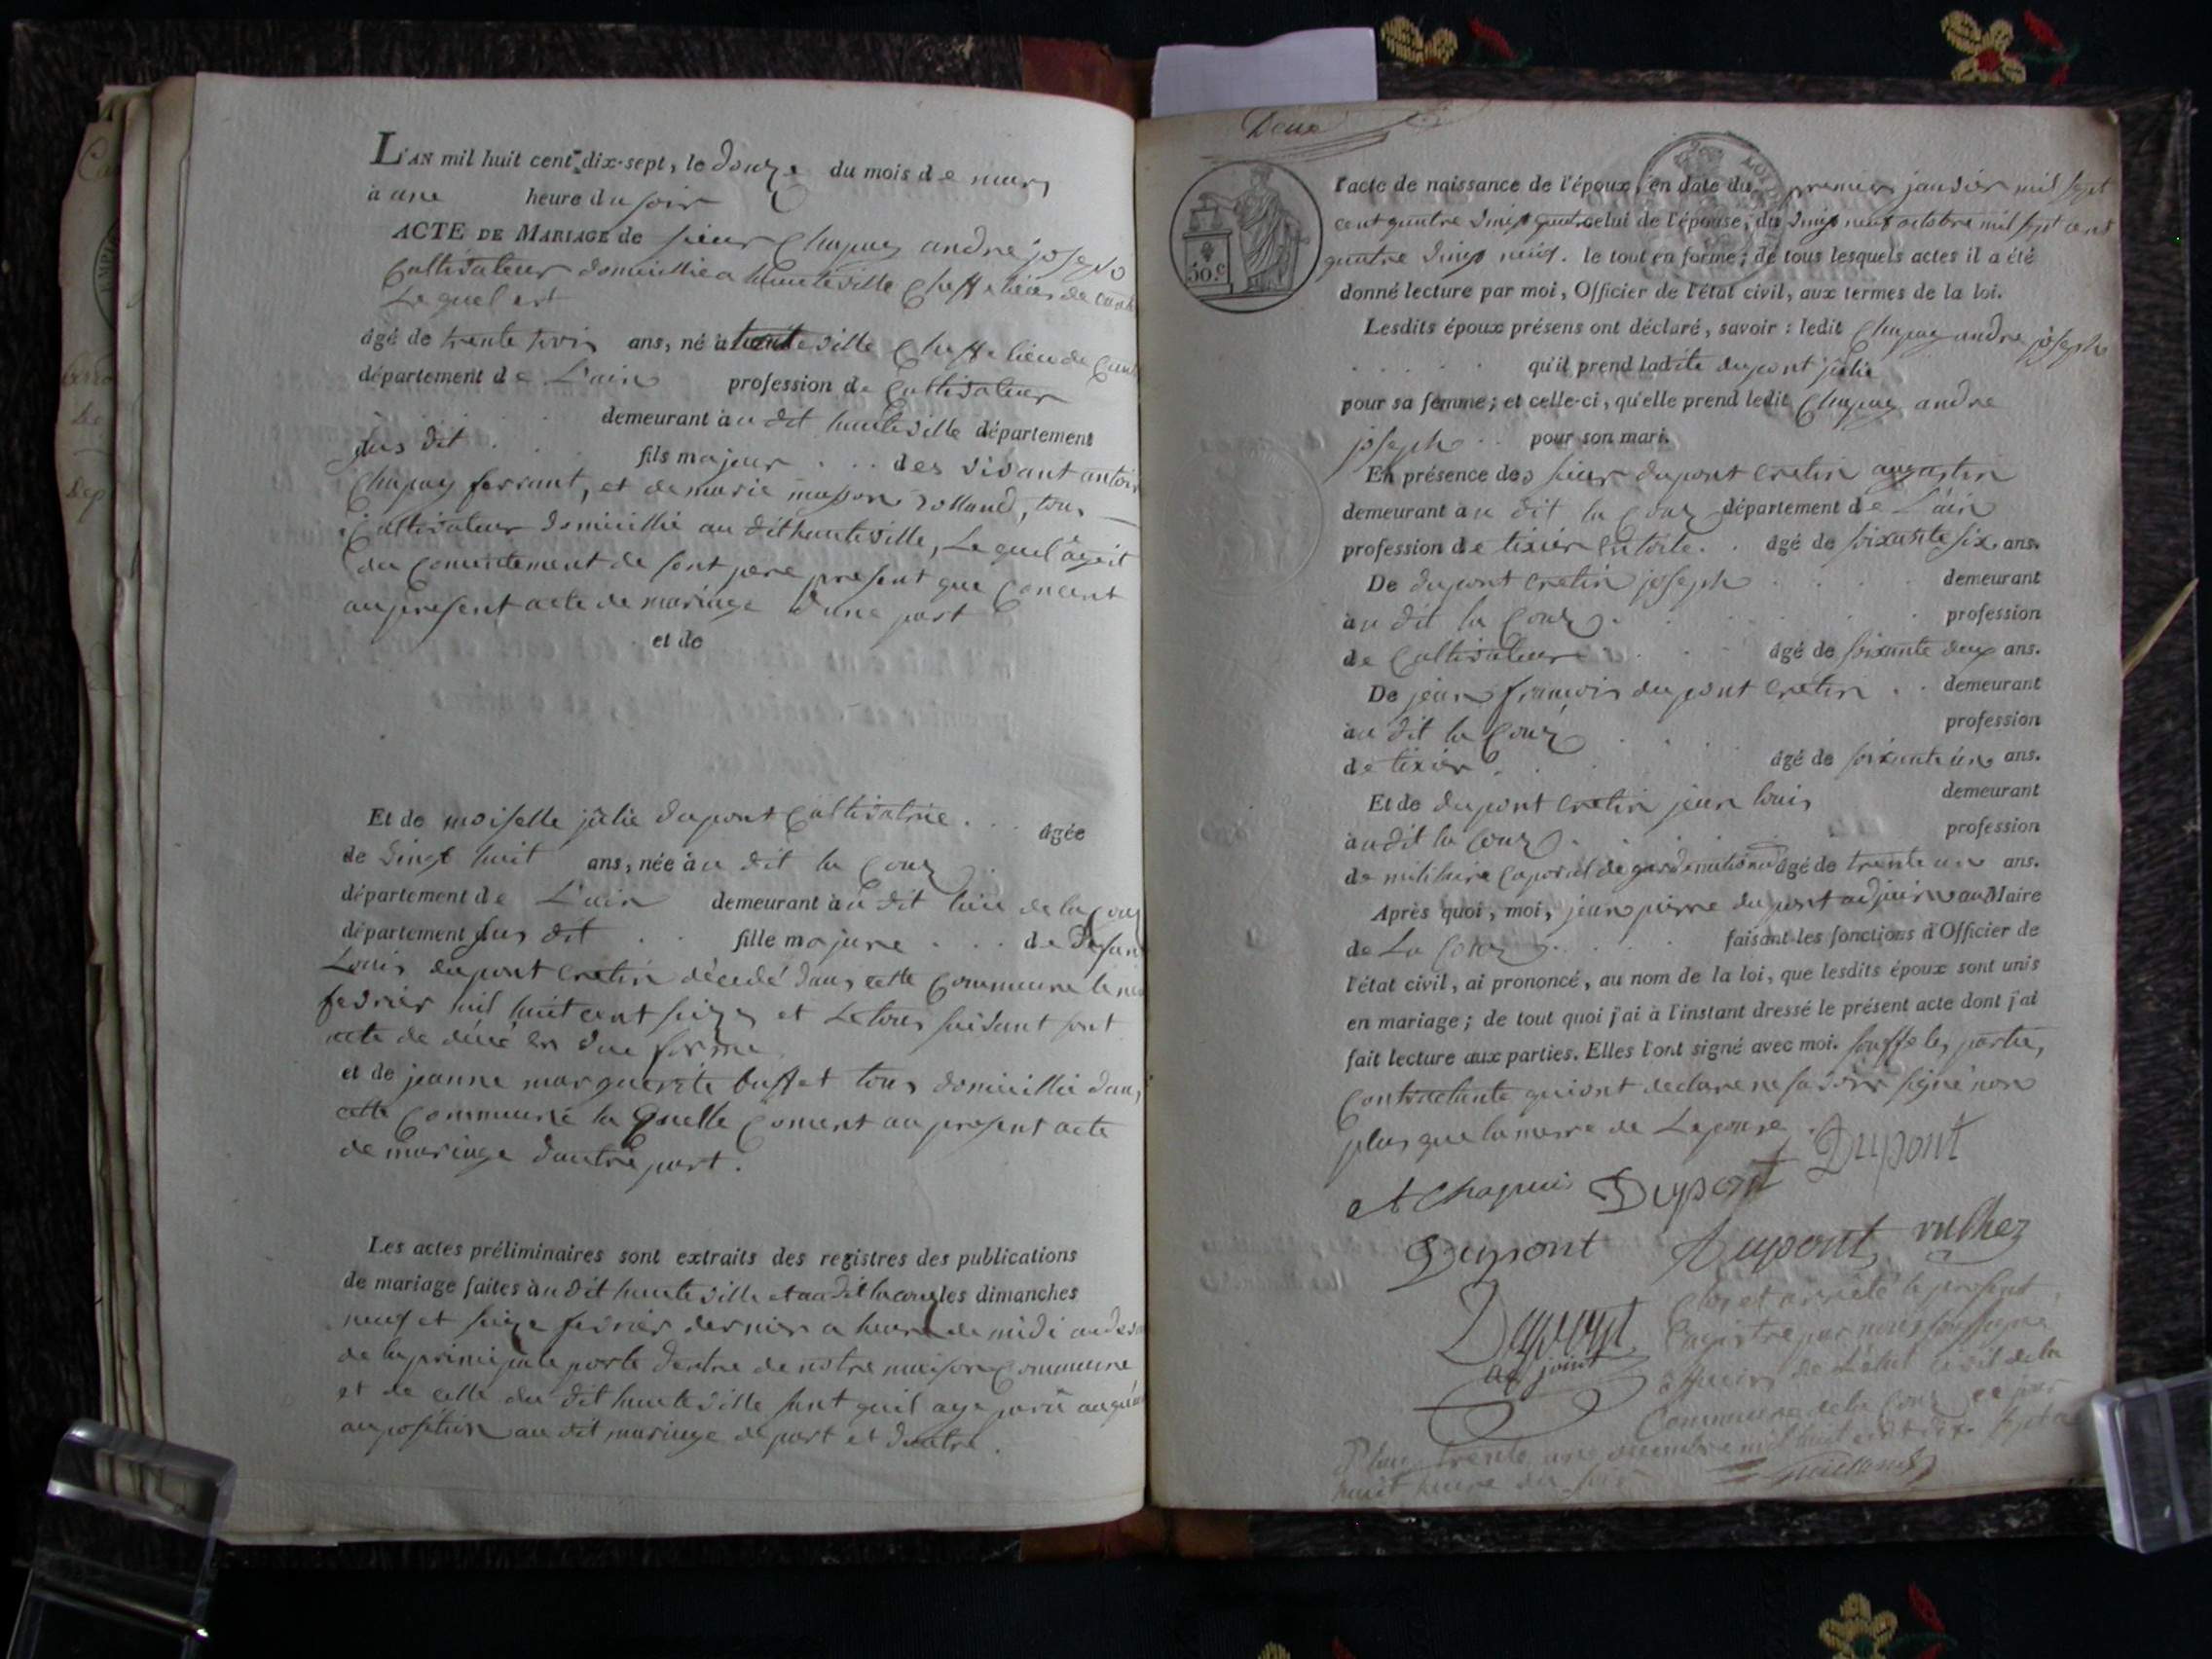 L'AN mil huit cent dix-sept, le douze du mois de mars
à une heure du soir
ACTE DE MARIAGE de sieur Chapuy andre joseph
Cultivateur domicillié a hauteville Cheffe lieu de cant
Le quel est
âgé de trente trois ans, né à hauteville Cheffe lieu de Cant
département de L'ain profession de Cultivateur
demeurant à u dit hauteville département
sus dit fils majeur des vivant antoin
Chapuy ferrant, et de marie masson rolland, tous
Cultivateur domicillié au dit hauteville, Le quel agit
du Consentement de sont pere present que Concent
au present acte de mariage d'une part
et de
Et de moiselle julie dupont Cultivatrice âgée
de vingt huit ans, née à u dit la Coux
département de L'ain demeurant à u dit lieu de la Coux
département sus dit fille majeure de
Louis dupont cretin décédé dans cette Commune le
fevrier mil huit cent seize et Letous suivant sont
acte de décé en due forme
et de jeanne marguerite buffet tous domicillié dans
cette Commune la quelle Consent au present acte
de mariage dautre part.
Les actes préliminaires sont extraits des registres des publications
de mariage faites à u dit hauteville et au dit lacoux les dimanches
neuf et seize fevrier dernier a heure de midi
de la principale porte dentre de notre maison Commune
et de celle du dit hauteville sant quil aye parû
au position au dit mariage de part et dautre.
Deux
50.c
l'acte de naissance de l'époux, en date du premier janvier mil sept
cent quatre vingt quatre celui de l'épouse, du vingt neuf octobre mil sept cent
quatre vingt neuf. le tout en forme; de tous lesquels actes il a été
donné lecture par moi, Officier de l'état civil, aux termes de la loi.
Lesdits époux présens ont déclaré, savoir : ledit Chapuy andre joseph
qu'il prend ladite dupont julie
pour sa femme; et celle-ci, qu'elle prend ledit Chapuy andre
joseph pour son mari.
En présence des sieur dupont cretin augustin
demeurant à u dit la Coux département de L'ain
profession de tixier en toile. âgé de soixante six ans.
De dupont cretin joseph demeurant
à u dit la Coux profession
de Cultivateur âgé de soixante deux ans.
De jean françois dupont cretin demeurant
à u dit la Coux profession
de tixier âgé de soixante un ans.
Et de dupont cretin jean louis demeurant
à u dit la Coux profession
de militaire Caporal de garde national âgé de trente un ans.
Après quoi, moi, jean pierre dupont adjoint au Maire
de La Coux faisant les fonctions d'Officier de
l'état civil, ai prononcé, au nom de la loi, que lesdits époux sont unis
en mariage; de tout quoi j'ai à l'instant dressé le présent acte dont j'ai
fait lecture aux parties. Elles l'ont signé avec moi. souffe les partie,
Contractante qui ont declare ne savoir signé non
plus que la merre de Lepouse.
Dupont
A Chapuis Dupont
Dupont Dupont vulliez
Dupont
adjoint
Clos et arrêté le present
Registre par nous soussigne
officier de L'état civil de la
Commune de la Coux ce jour
trente un decembre mil huit cent dix sept a
huit heure du soir